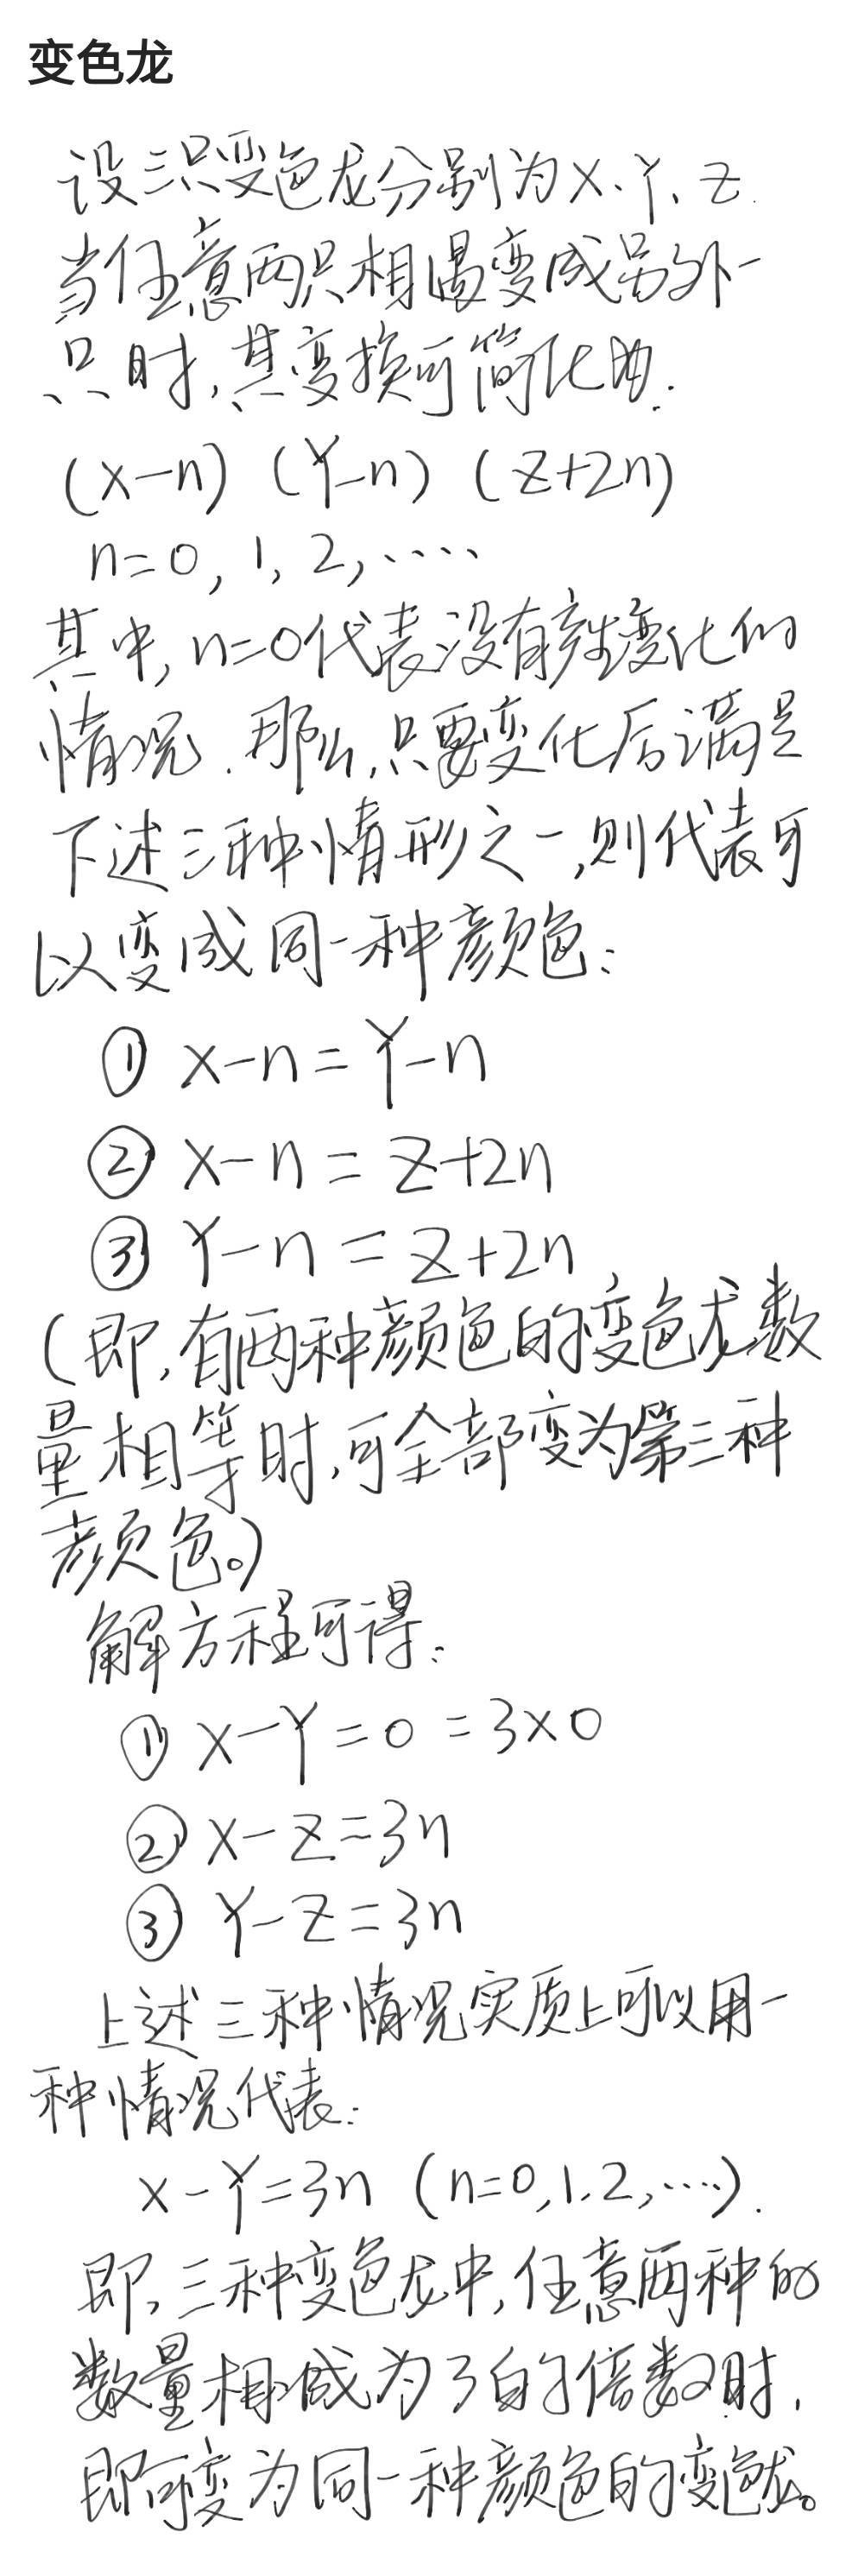 变色龙
设三只变色龙分别为X、Y、Z.
当任意两只相遇变成另外一
只时,其变换可简化为.
(X-n) (Y-n) (Z+2n)
n=0, 1, 2, ····
其中, n=0代表没有产生变化的
情况. 那么,只要变化后满足
下述三种情形之一,则代表可
以变成同一种颜色:
① X-n=Y-n
② X-n=Z+2n
③ Y-n=Z+2n
(即,有两种颜色的变色龙数
量相等时,可全部变为第三种
颜色。)
解方程可得:
① X-Y=0=3×0
② X-Z=3n
③ Y-Z=3n
上述三种情况实质上可以用一
种情况代表:
X-Y=3n (n=0,1.2,····).
即,三种变色龙中,任意两种的
数量相减成为3的倍数时,
即可变为同一种颜色的变色龙。